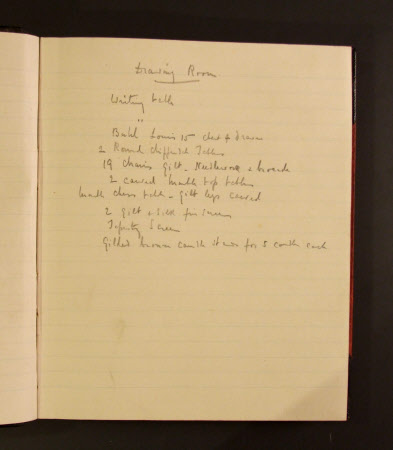 Drawing Room
Writing table
"
Buhl Louis 15 chest of drawers
2 Round Tables
19 chairs gilt - Needlework & brocade
2 carved marble top tables
marble chess table - gilt legs carved
2 gilt & silk fire screens
Tapestry Screen
Gilded bronze candle stands for 5 candles each